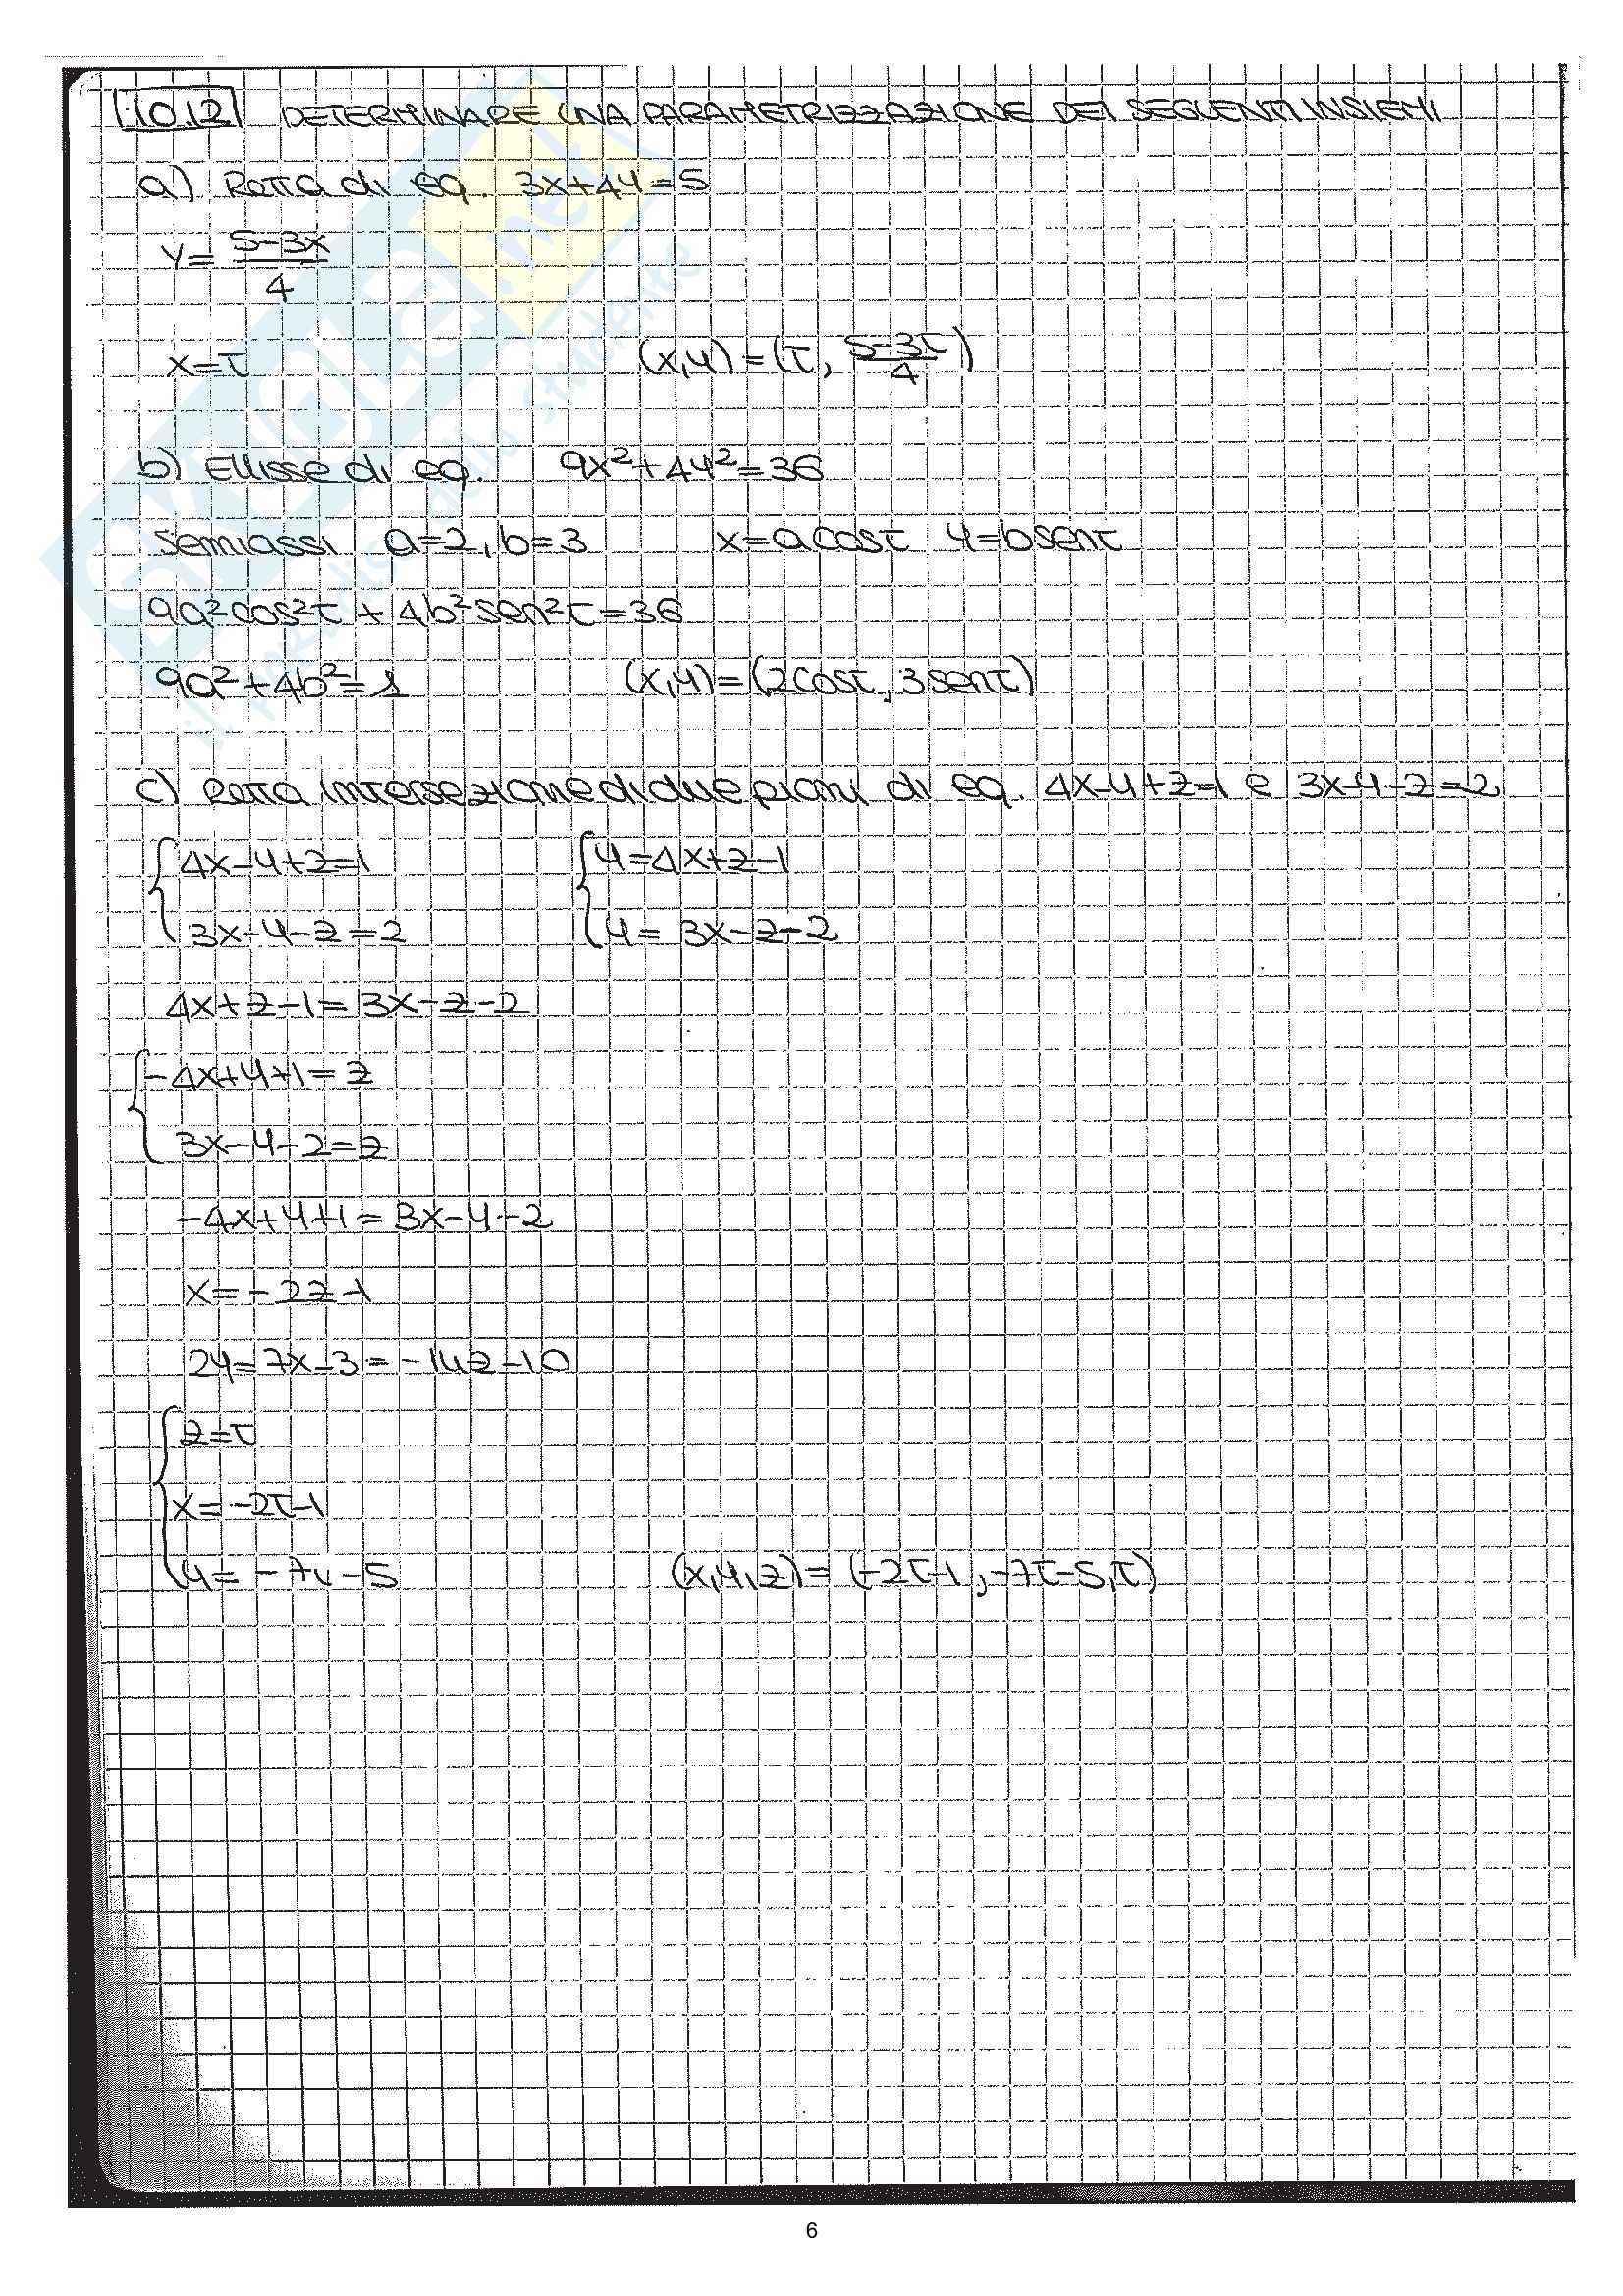 10.12 DETERMINARE UNA PARAMETRIZZAZIONE DEI SEGUENTI INSIEMI
a) Retta di eq. 3x+4y=5
y= (5-3x)/4
x=t (x,y)=(t, (5-3t)/4)
b) Ellisse di eq. 9x²+4y²=36
semiassi a=2, b=3 x=a cost y=b sent
9a²cos²t + 4b²sen²t=36
9a²+4b²=1 (x,y)=(2cost, 3sent)
c) Retta intersezione di due piani di eq. 4x-y+z=1 e 3x-y-z=2
{4x-y+z=1 {y=4x+z-1
3x-y-z=2 y=3x-z-2
4x+z-1=3x-z-2
{-4x+y+1=z
3x-y-2=z
-4x+y+1=3x-y-2
x=-2z-1
2y=7x-3=-14z-10
{z=t
x=-2t-1
y=-7t-5 (x,y,z)=(-2t-1, -7t-5, t)
6